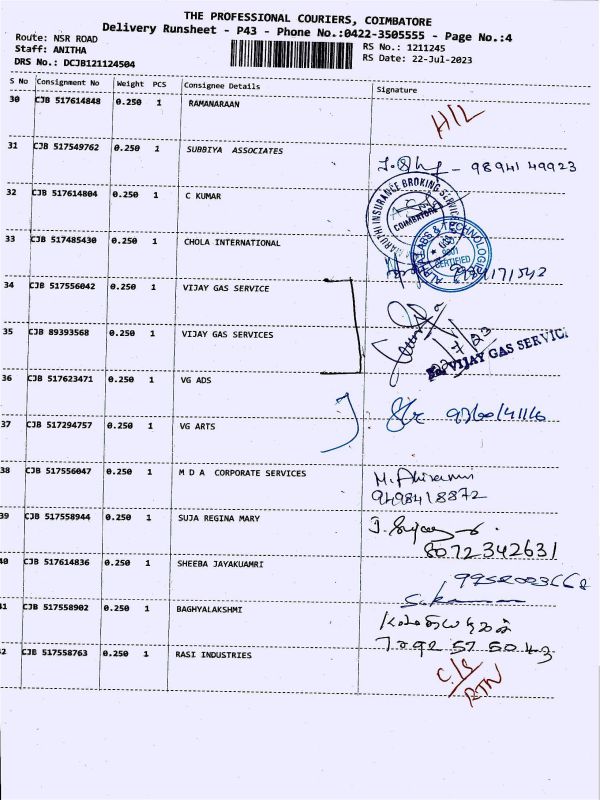 THE PROFESSIONAL COURIERS, COIMBATORE
Delivery Runsheet - P43 - Phone No.:0422-3505555 - Page No.:4
Route: NSR ROAD
Staff: ANITHA
DRS No.: DCJB121124504
RS No.: 1211245
RS Date: 22-Jul-2023
S No Consignment No Weight PCS Consignee Details Signature
30 CJB 517614848 0.250 1 RAMANARAAN H/L
31 CJB 517549762 0.250 1 SUBBIYA ASSOCIATES - 98941 49923
32 CJB 517614804 0.250 1 C KUMAR
MARUTHI INSURANCE BROKING SERVICE
COIMBATORE
33 CJB 517485430 0.250 1 CHOLA INTERNATIONAL
LABS & TECHNOLOGIES
CERTIFIED
34 CJB 517556042 0.250 1 VIJAY GAS SERVICE
35 CJB 89393568 0.250 1 VIJAY GAS SERVICES
For VIJAY GAS SERVIC
36 CJB 517623471 0.250 1 VG ADS
37 CJB 517294757 0.250 1 VG ARTS
38 CJB 517556047 0.250 1 M D A CORPORATE SERVICES
9498418872
39 CJB 517558944 0.250 1 SUJA REGINA MARY
8072342631
40 CJB 517614836 0.250 1 SHEEBA JAYAKUAMRI
41 CJB 517558902 0.250 1 BAGHYALAKSHMI
7092 57 5043
42 CJB 517558763 0.250 1 RASI INDUSTRIES
RTN